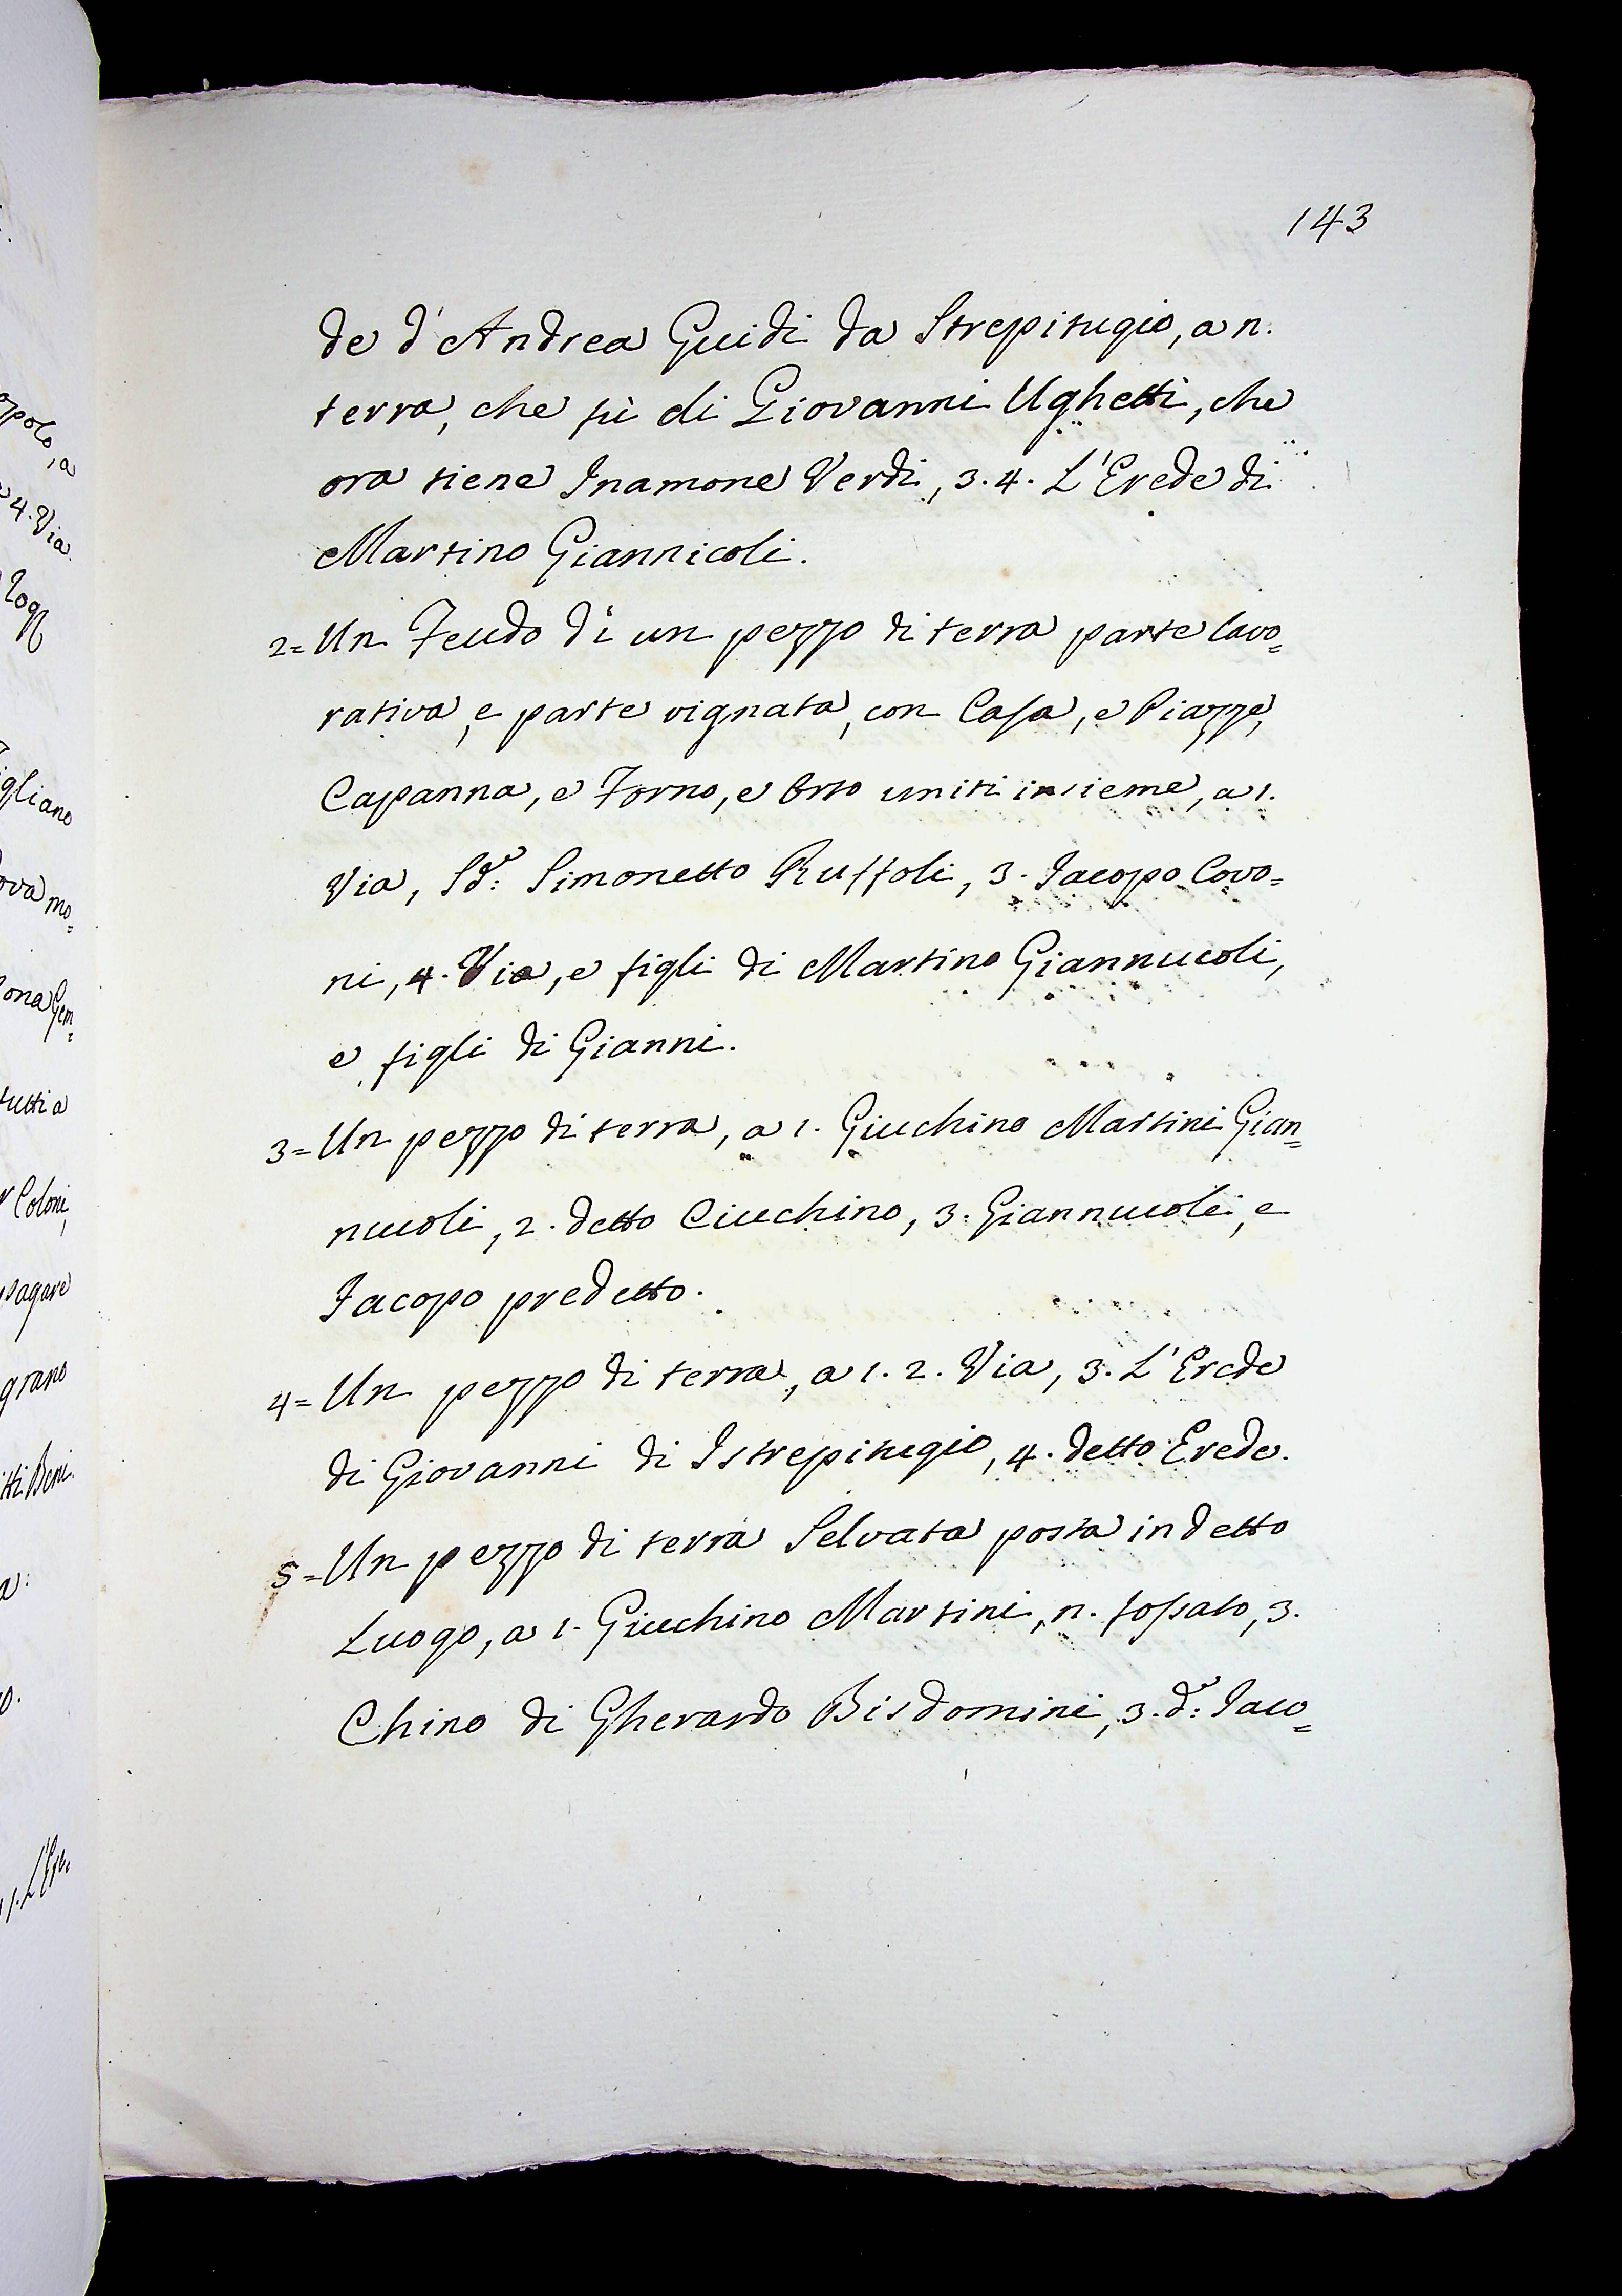 143
de d'Andrea Guidi da Strepitugio, a n.
terra, che fù di Giovanni Ughetti, che
ora tiene Inamone Verdi, 3. 4. L'Erede di
Martino Giannicoli.
2= Un Feudo di un pezzo di terra parte lavo=
rativa, e parte vignata, con Casa, e Piazze,
Capanna, e Forno, e Orto uniti insieme, a 1.
Via, Sd: Simonetto Ruffoli, 3. Jacopo Covo=
ni, 4. Via, e figli di Martino Giannucoli,
e figli di Gianni.
3= Un pezzo di terra, a 1. Giuchino Martini Gian=
nucoli, 2. detto Ciuchino, 3. Giannucoli, e
Jacopo predetto.
4= Un pezzo di terra, a 1. 2. Via, 3. L'Erede
di Giovanni di Istrepitugio, 4. detto Erede.
5= Un pezzo di terra Selvata posta in detto
Luogo, a 1. Giuchino Martini, n. fossato, 3.
Chino di Gherardo Bisdomini, 3. d: Jaco=
opolo, a
4. Via
igliano
ova mo=
ona Gem=
tutti a
Coloni,
pagare
grano
itti Beni.
1. L'Ere